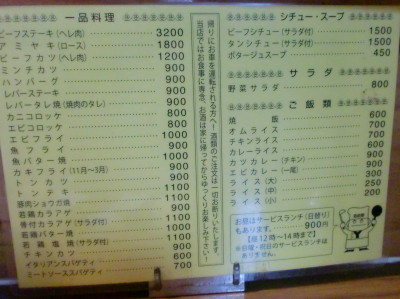 一品料理
ビーフステーキ(ヘレ肉) 3200
アミヤキ(ロース) 1800
ビーフカツ(ヘレ肉) 1200
ミンチカツ 900
ハンバーグ 900
レバーステーキ 900
レバータレ焼(焼肉のタレ) 900
カニコロッケ 900
エビコロッケ 900
エビフライ 1000
魚フライ 900
魚バター焼 1000
カキフライ(11月〜3月) 900
トンカツ 1100
トンテキ 1100
豚肉ショウガ焼 1100
若鶏カラアゲ 900
骨付カラアゲ(サラダ付) 1000
若鶏バター焼 1100
若鶏塩焼(サラダ付) 1100
チキンカツ 1000
イタリアンスパゲティ 600
ミートソーススパゲティ 700
帰りにお車を運転される方へ!酒類のご注文は一切お断りいたします。
当店ではお食事に専念、お酒は家に帰ってからゆっくりお楽しみ下さい!
シチュー・スープ
ビーフシチュー(サラダ付) 1500
タンシチュー(サラダ付) 1500
ポタージュスープ 450
サラダ
野菜サラダ 800
ご飯類
焼飯 600
オムライス 700
チキンライス 700
カレーライス 600
カツカレー(チキン) 900
エビカレー(一尾) 900
ライス(大) 300
ライス(中) 250
ライス(小) 200
お昼はサービスランチ(日替り)
もあります。 900円
【昼12時〜14時まで】
※日曜・祝日のサービスランチは
ありません。